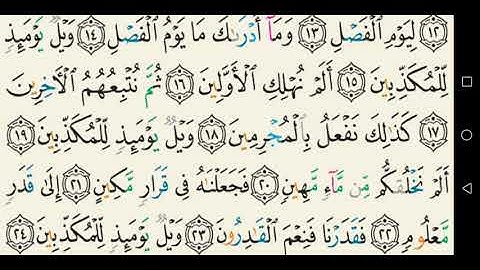 ١٢ لِيَوْمِ ٱلْفَصْلِ ١٣ وَمَآ أَدْرَىٰكَ مَا يَوْمُ ٱلْفَصْلِ ١٤ وَيْلٌ يَوْمَئِذٍ
لِّلْمُكَذِّبِينَ ١٥ أَلَمْ نُهْلِكِ ٱلْأَوَّلِينَ ١٦ ثُمَّ نُتْبِعُهُمُ ٱلْأَخِرِينَ
١٧ كَذَٰلِكَ نَفْعَلُ بِٱلْمُجْرِمِينَ ١٨ وَيْلٌ يَوْمَئِذٍ لِّلْمُكَذِّبِينَ ١٩
أَلَمْ نَخْلُقكُّم مِّن مَّآءٍ مَّهِينٍ ٢٠ فَجَعَلْنَٰهُ فِى قَرَارٍ مَّكِينٍ ٢١ إِلَىٰ قَدَرٍ
مَّعْلُومٍ ٢٢ فَقَدَرْنَا فَنِعْمَ ٱلْقَٰدِرُونَ ٢٣ وَيْلٌ يَوْمَئِذٍ لِّلْمُكَذِّبِينَ ٢٤